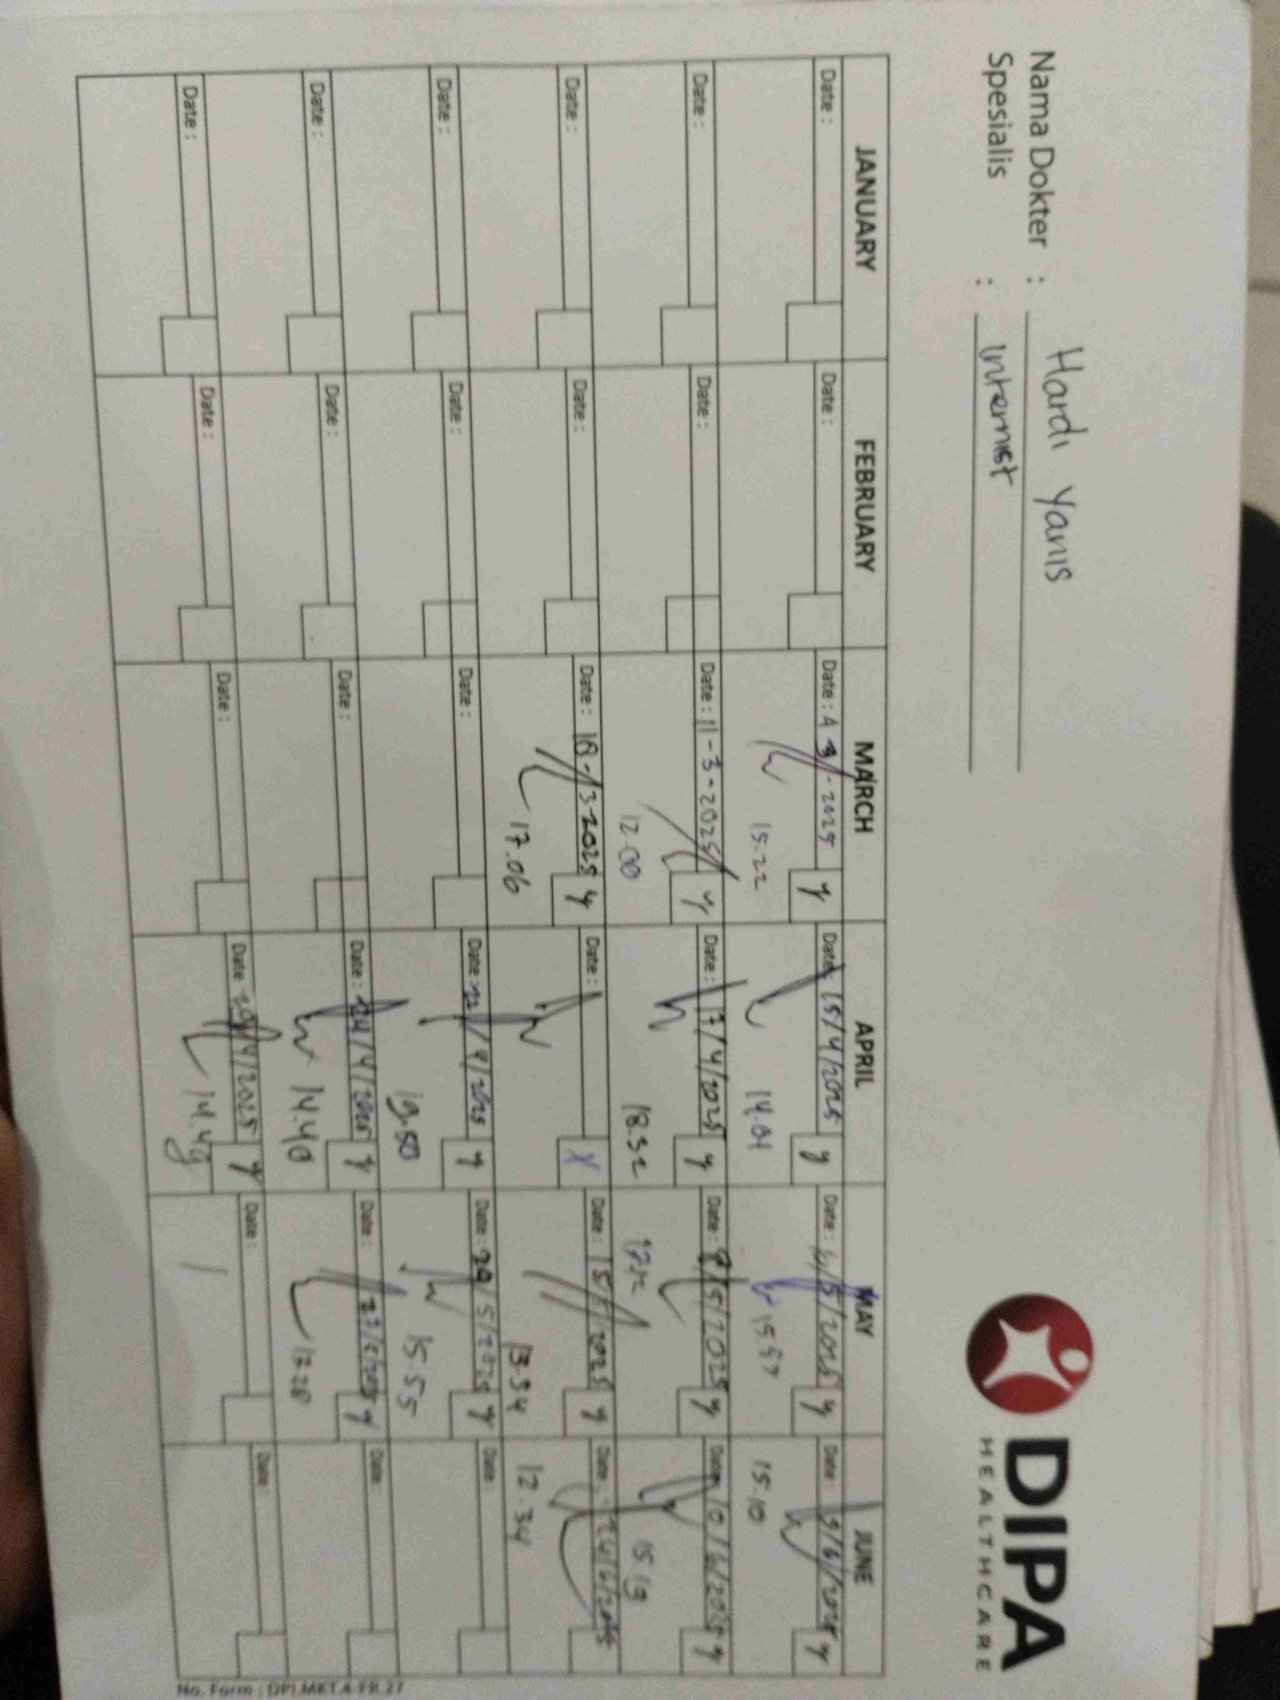 Nama Dokter : Hardi Yanis
Spesialis : Internist
DIPA
HEALTHCARE
JANUARY FEBRUARY MARCH APRIL MAY JUNE
Date : Date : Date : 4 3 - 2025 y Date 15/4/2025 y Date : /5/2025 y Date : 9/6/2025 y
15.22 14.01 15.57 15.10
Date : Date : Date : 11-3-2025 y Date : 17/4/2025 y Date : 8/5/2025 y Date 10/6/2025 y
12.00 18.32 17.12 15.19
Date : Date : Date : 18-3-2025 y Date : X Date : 15/5/2025 y Date 24/6/2025
17.06 13.34 12.34
Date : Date : Date : Date 22/4/2025 y Date : 20/5/2025 y Date
19.50 15.55
Date : Date : Date : Date : 24/4/2025 y Date : 27/5/2025 y Date
14.40 13.20
Date : Date : Date : Date 29/4/2025 y Date : Date
14.49
No. Form : DPI.MKT.4-FR.27